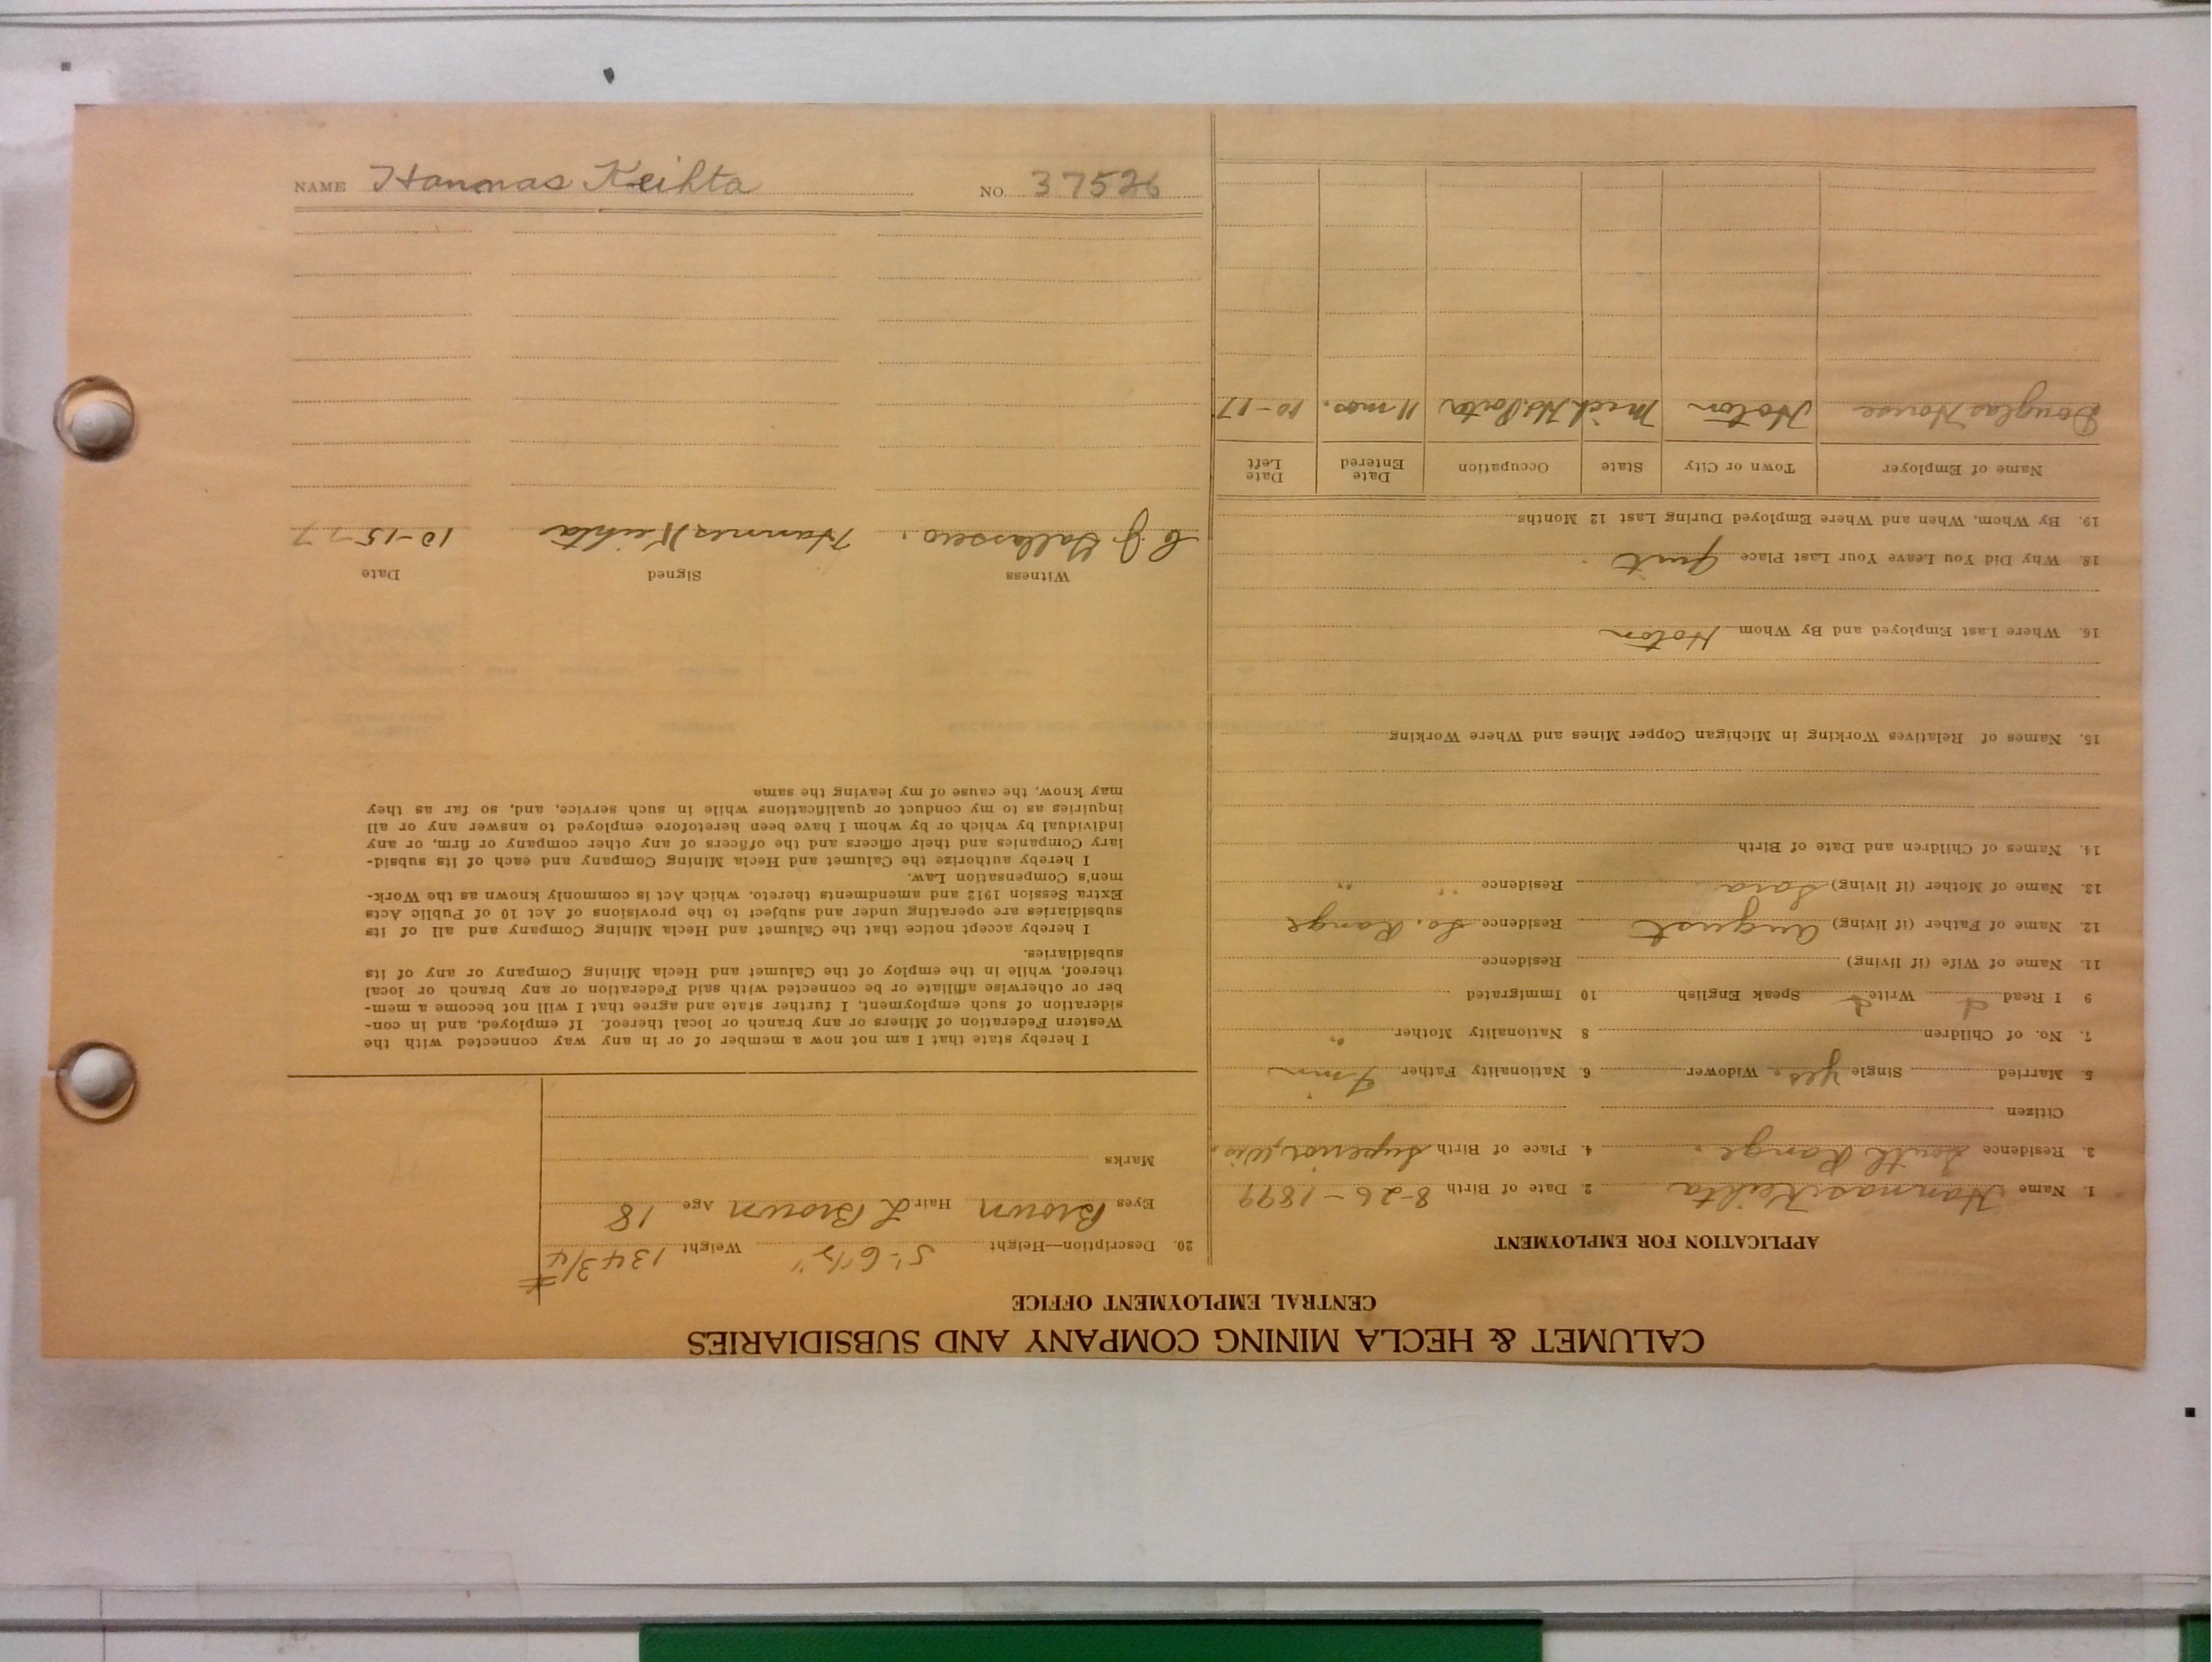 NAME Hannas Keihta NO. 37526
CALUMET & HECLA MINING COMPANY AND SUBSIDIARIES
CENTRAL EMPLOYMENT OFFICE
APPLICATION FOR EMPLOYMENT
1. Name Hannas Keihta 2. Date of Birth 8-26-1899
3. Residence South Range. 4. Place of Birth Superior, Wis.
Citizen
5. Married Single yes. Widower 6. Nationality Father Finn
7. No. of Children 8 Nationality Mother "
9 I Read Write Speak English 10 Immigrated
11. Name of Wife (if living) Residence
12. Name of Father (if living) August Residence So. Range
13. Name of Mother (if living) Sara Residence " "
14. Names of Children and Date of Birth
15. Names of Relatives Working in Michigan Copper Mines and Where Working
16. Where Last Employed and By Whom Hoton
18. Why Did You Leave Your Last Place Quit
19. By Whom, When and Where Employed During Last 12 Months
Name of Employer Town or City State Occupation Date Entered Date Left
Douglas House Hoton Mich Ho. Porter 11 mos. 10-17
20. Description—Height 5'-6½" Weight 134 3/4 #
Eyes Brown Hair L Brown Age 18
Marks
I hereby state that I am not now a member of or in any way connected with the
Western Federation of Miners or any branch or local thereof. If employed, and in con-
sideration of such employment, I further state and agree that I will not become a mem-
ber or otherwise affiliate or be connected with said Federation or any branch or local
thereof, while in the employ of the Calumet and Hecla Mining Company or any of its
subsidiaries.
I hereby accept notice that the Calumet and Hecla Mining Company and all of its
subsidiaries are operating under and subject to the provisions of Act 10 of Public Acts
Extra Session 1912 and amendments thereto, which Act is commonly known as the Work-
men's Compensation Law.
I hereby authorize the Calumet and Hecla Mining Company and each of its subsid-
iary Companies and their officers and the officers of any other company or firm, or any
individual by which or by whom I have been heretofore employed to answer any or all
inquiries as to my conduct or qualifications while in such service, and, so far as they
may know, the cause of my leaving the same
Witness Signed Date
C. J. Hannes Keihta 10-15-17